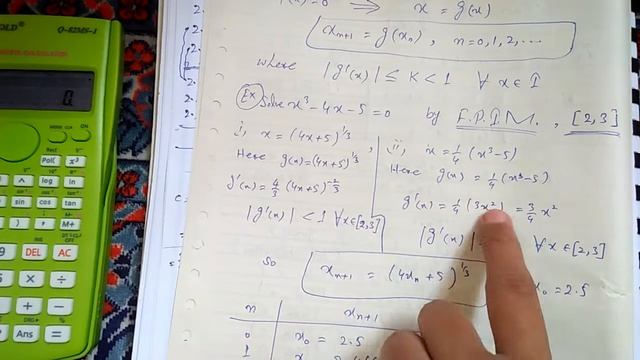 f(x)=0 ⟹ x = g(x)
x_{n+1} = g(x_n), n=0,1,2,...
where |g'(x)| ≤ K < 1 ∀ x ∈ I
Ex Solve x³ - 4x - 5 = 0 by F.P.I.M., [2,3]
i, x = (4x+5)^{1/3}
Here g(x) = (4x+5)^{1/3}
g'(x) = 4/3 (4x+5)^{-2/3}
|g'(x)| < 1 ∀ x ∈ [2,3]
ii, x = 1/4 (x³-5)
Here g(x) = 1/4 (x³-5)
g'(x) = 1/4 (3x²) = 3/4 x²
|g'(x)| ∀ x ∈ [2,3]
so x_{n+1} = (4x_n + 5)^{1/3} x_0 = 2.5
n x_{n+1}
0 x_0 = 2.5
1
2.
2.
OLD Q-82MS-1
0.
Pol( x³
sin cos tan
( ) , M+
9 DEL AC
6 × ÷
3 + -
Ans =
DRG▸ %